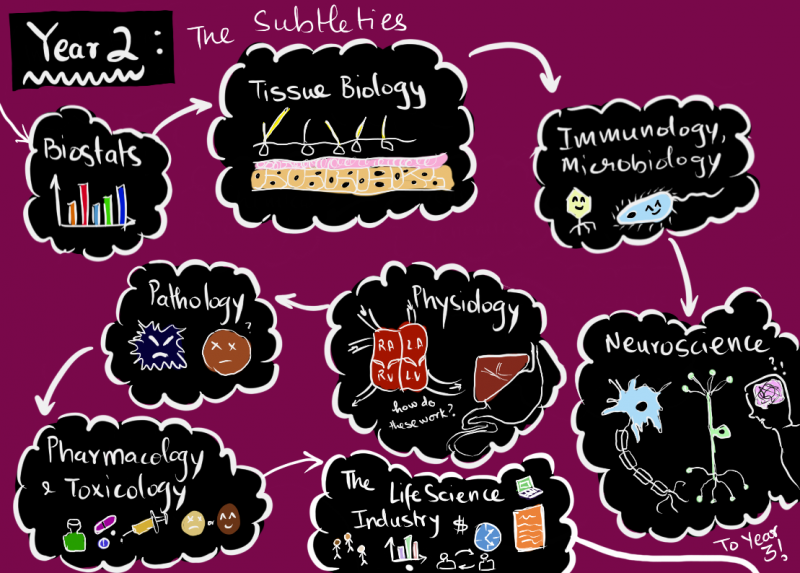 Year 2 : The Subtleties
Biostats
Tissue Biology
Immunology,
Microbiology
Neuroscience
?
Physiology
RA LA
RV LV
how do
these work?
Pathology
?
Pharmacology
& Toxicology
or
The
LifeScience
Industry
$
To Year
3!